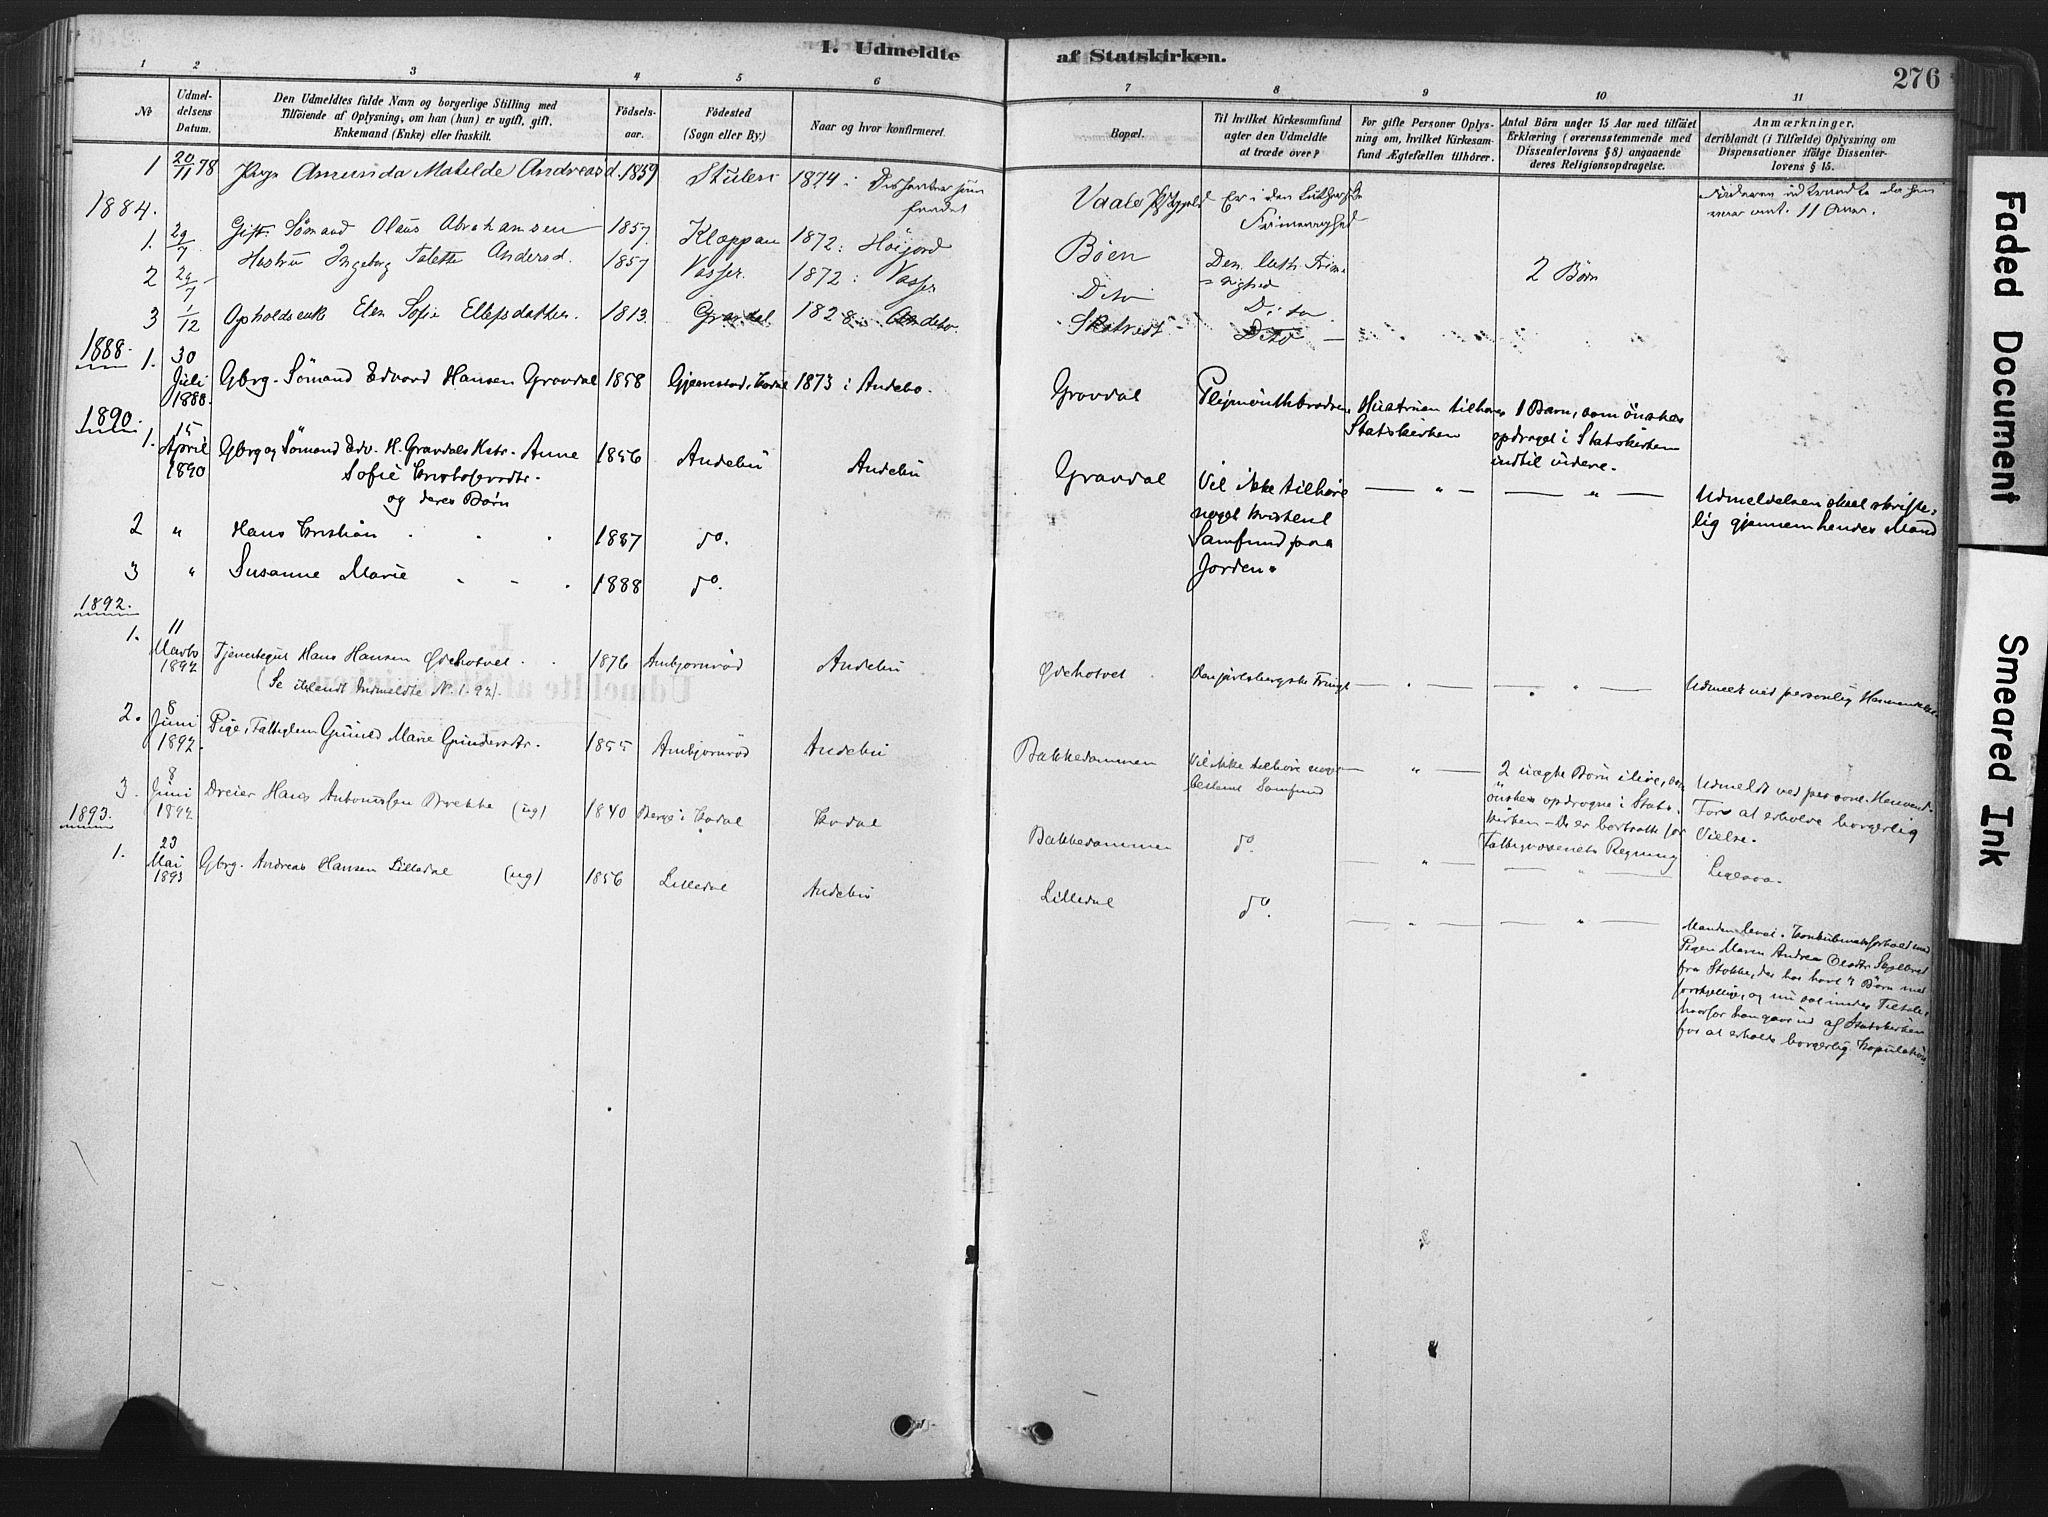 I. Udmeldte af Statskirken.
276
1 2 3 4 5 6 7 8 9 10 11
No
Udmel-
delsens
Datum.
Den Udmeldtes fulde Navn og borgerlige Stilling med
Tilføiende af Oplysning, om han (hun) er ugift, gift,
Enkemand (Enke) eller fraskilt.
Fødsels-
aar.
Fødested
(Sogn eller By.)
Naar og hvor konfirmeret.
Bopæl.
Til hvilket Kirkesamfund
agter den Udmeldte
at træde over?
For gifte Personer Oplys-
ning om, hvilket Kirkesam-
fund Ægtefællen tilhører.
Antal Børn under 15 Aar med tilføiet
Erklæring (overensstemmende med
Dissenterlovens § 8) angaaende
deres Religionsopdragelse.
Anmærkninger,
deriblandt (i Tilfælde) Oplysning om
Dispensationer ifølge Dissenter-
lovens § 15.
1 20/11 78 Amunda Matilde Andreasd. 1859 Stulen 1874 i
Vaale Er i den
11 Aar.
1884.
1. 29/7 Gift. Sømand Olaus Abrahamsen 1857 Kleppan 1872: Høijord
Bøen Den luth. Frime-
nighed 2 Børn
2 29/7 Hustru Ingeborg Talette Andersd. 1857 Vasser 1872: Vasser
Dito Dito
3 1/12 Opholdsenke Elen Sofie Ellefsdatter 1813 Gravdal 1828 Andebo.
Skatvedt Dito
1888.
1. 30
Juli
1888. Gbrg. Sømand Edvard Hansen Gravdal 1858 Gjeverstad i Kodal 1873 i Andebo.
Gravdal Plejmouthbrødrene Hustruen tilhører 1 Barn, som ønskes
Statskirken opdraget i Statskirken
indtil videre.
1890.
1. 15
April
1890 Gbrg og Sømand Edv. H. Gravdals Hstr. Anne 1856 Andebu Andebu
Sofie Kristofersdtr.
og deres Børn
Gravdal Vil ikke tilhøre — " — — " — Udmeldelsen skeet skrifte-
noget kristent lig gjennem hendes Mand
Samfund paa
Jorden.
2 " Hans Kristian 1887 do.
3 " Susanne Marie 1888 do.
1892.
1. 11
Marts
1892 Tjenestegut Hans Hansen Ødehotvet 1876 Ambjørnrød Andebu
(Se iblandt Indmeldte N. 1. 92).
Ødehotvet Den jarlsbergske Frimgh — " — — " — Udmeldt ved personlig Henvendelse.
2. 8
Juni
1892. Pige, Fattiglem Gunild Marie Gundersdtr. 1855 Ambjørnrød Andebu
Bakkedammen Vil ikke tilhøre noget — " — 2 uægte Børn ilive, som
bestemt Samfund ønskes opdragne i Stats-
kirken – De er bortsatte for
Fattigvæsenets Regning
Udmeldt ved personl. Henvend.
For at erholde borgerlig
Vielse.
3. 8
Juni
1892 Dreier Hans Antonissen Brekke (ug) 1840 Berge i Kodal Kodal
Bakkedammen do. — " — — " — Ligesaa.
1893.
1. 23
Mai
1893 Gbrg. Andreas Hansen Lilledal (ug) 1856 Lilledal Andebu
Lilledal do. — " — — " — Manden lever i Konkubinatsforhold med
Pigen Maren Andrea Olsdtr
fra Stokke, der har havt Børn med
forskjellige, og nu sat under Tiltale,
hvorfor han gaar ud af Statskirken
for at erholde borgerlig Kopulation.
Faded Document
Smeared Ink